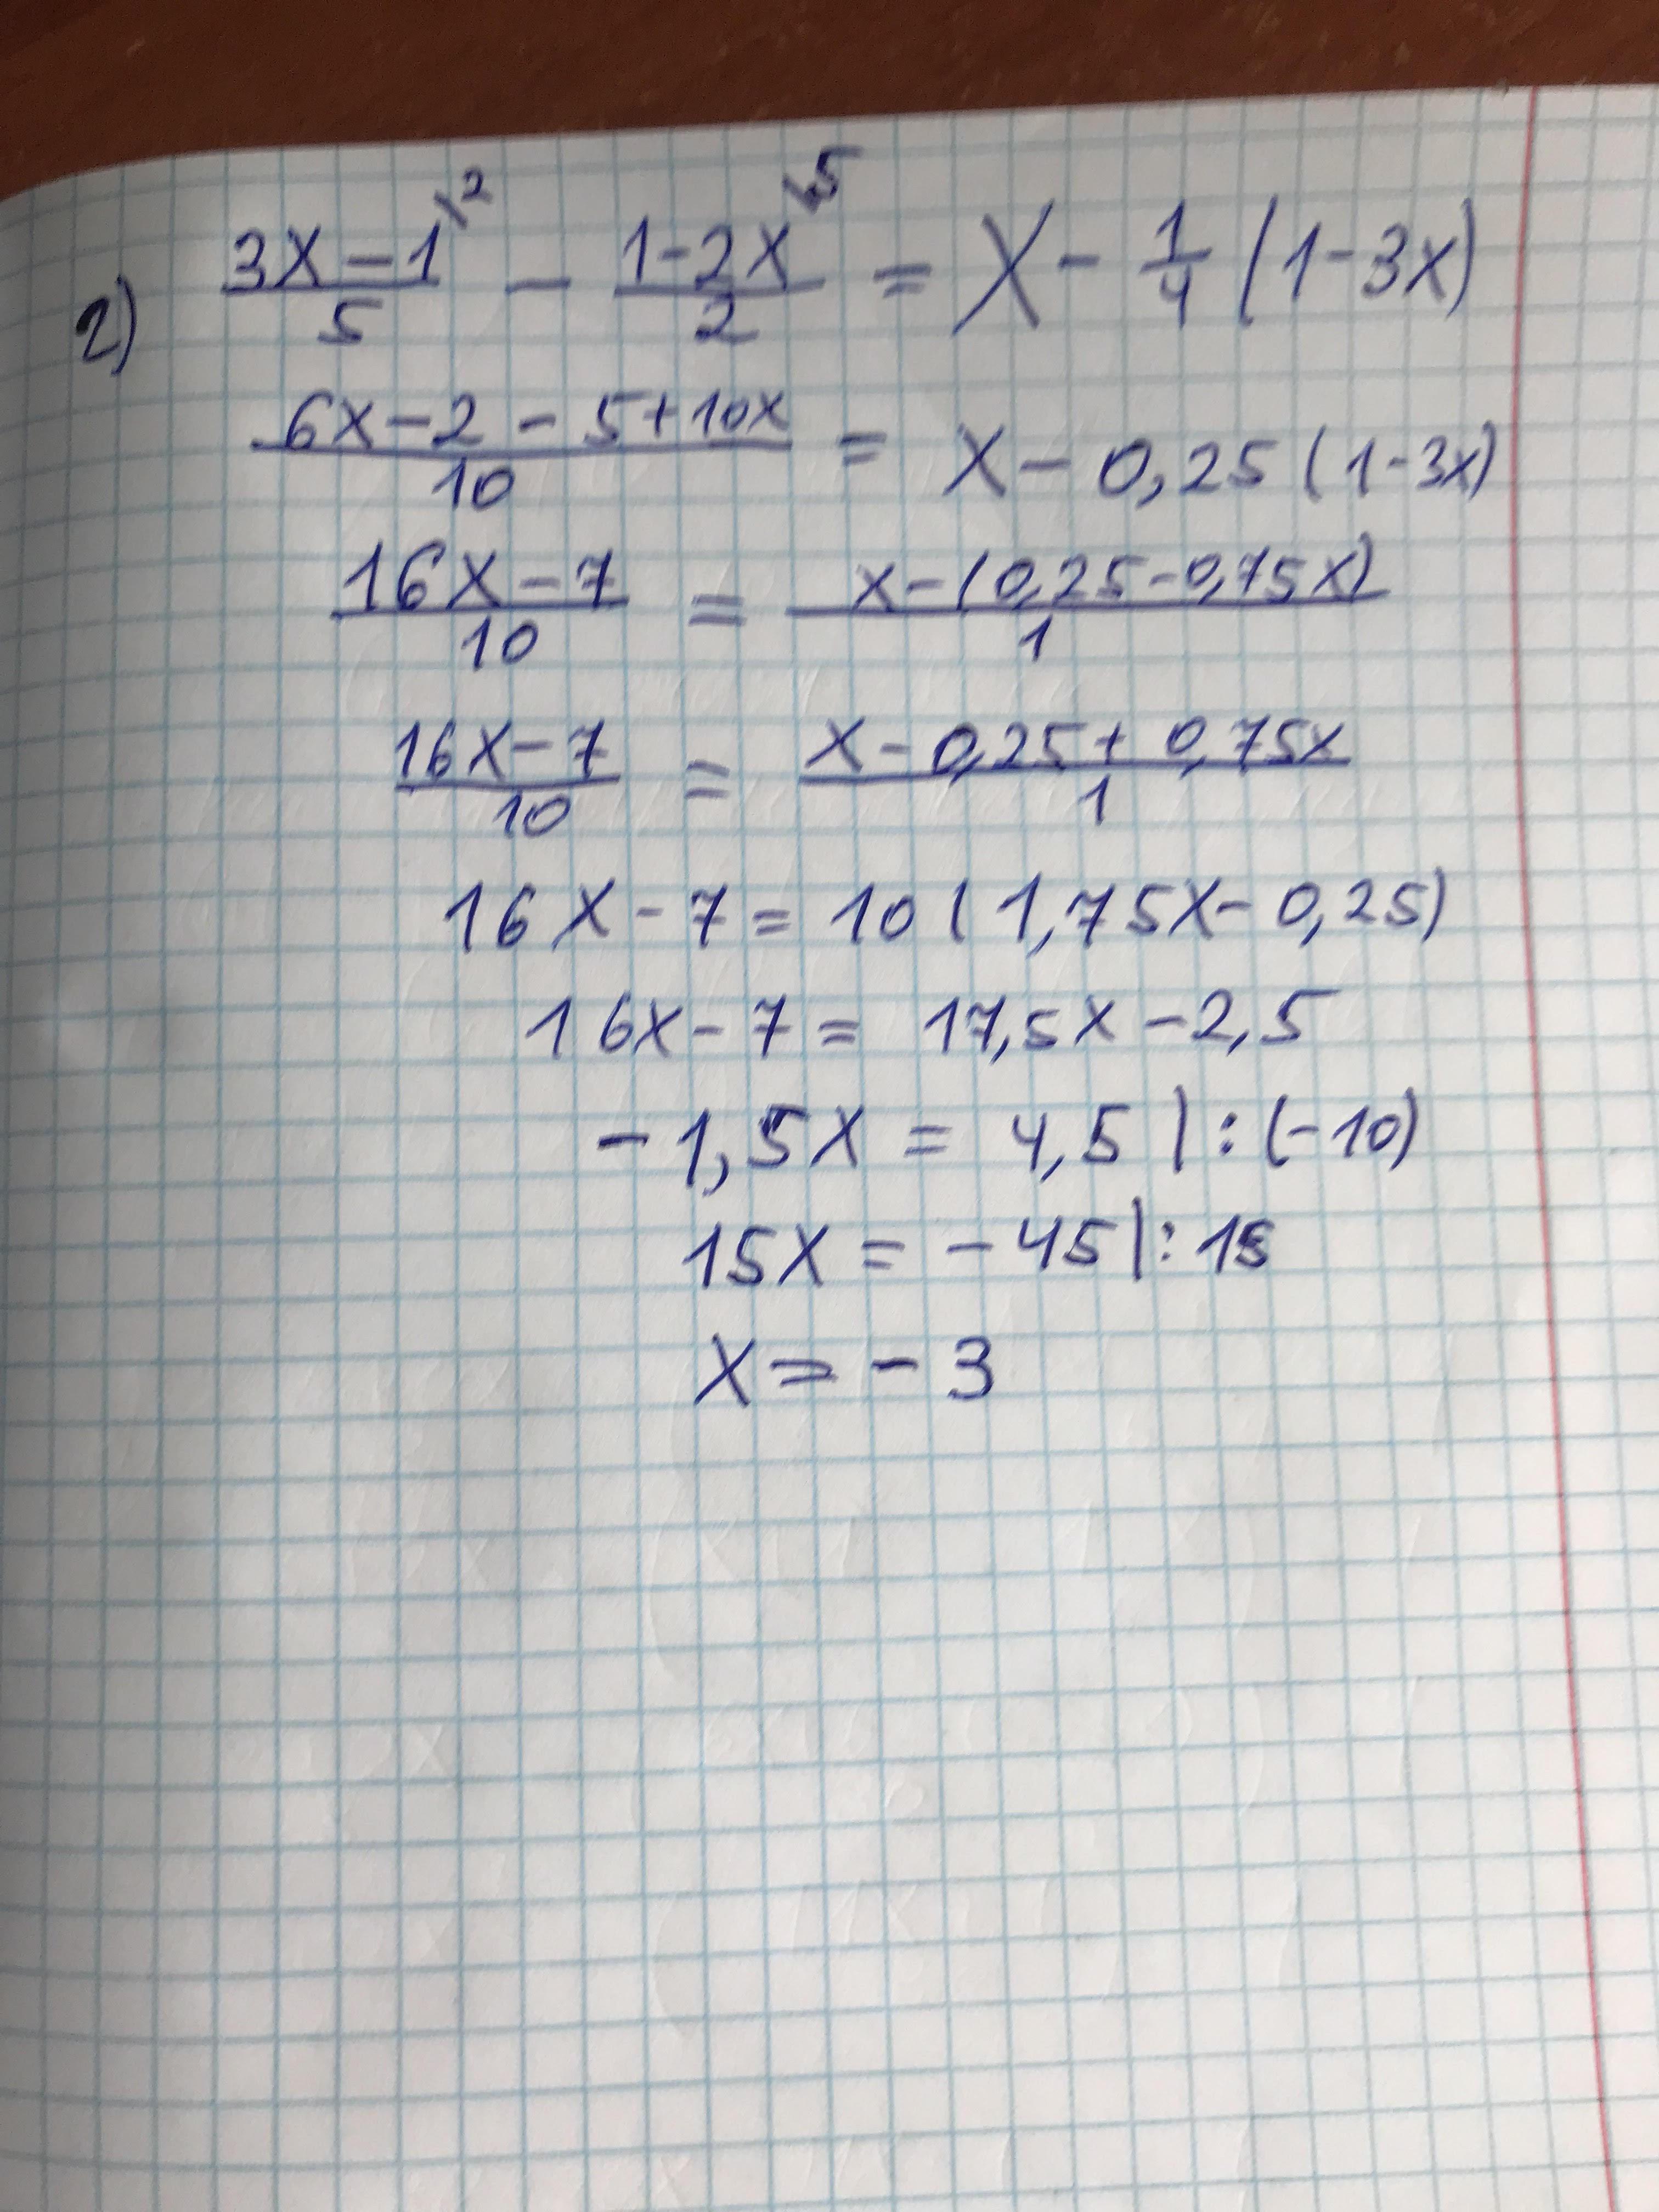 2) (3x-1)/5 \2 - (1-2x)/2 \5 = x - 1/4 (1-3x)
(6x-2-5+10x)/10 = x - 0,25 (1-3x)
(16x-7)/10 = (x-(0,25-0,75x))/1
(16x-7)/10 = (x-0,25+0,75x)/1
16x-7 = 10(1,75x-0,25)
16x-7 = 17,5x-2,5
-1,5x = 4,5 |:(-10)
15x = -45 |:15
x = -3